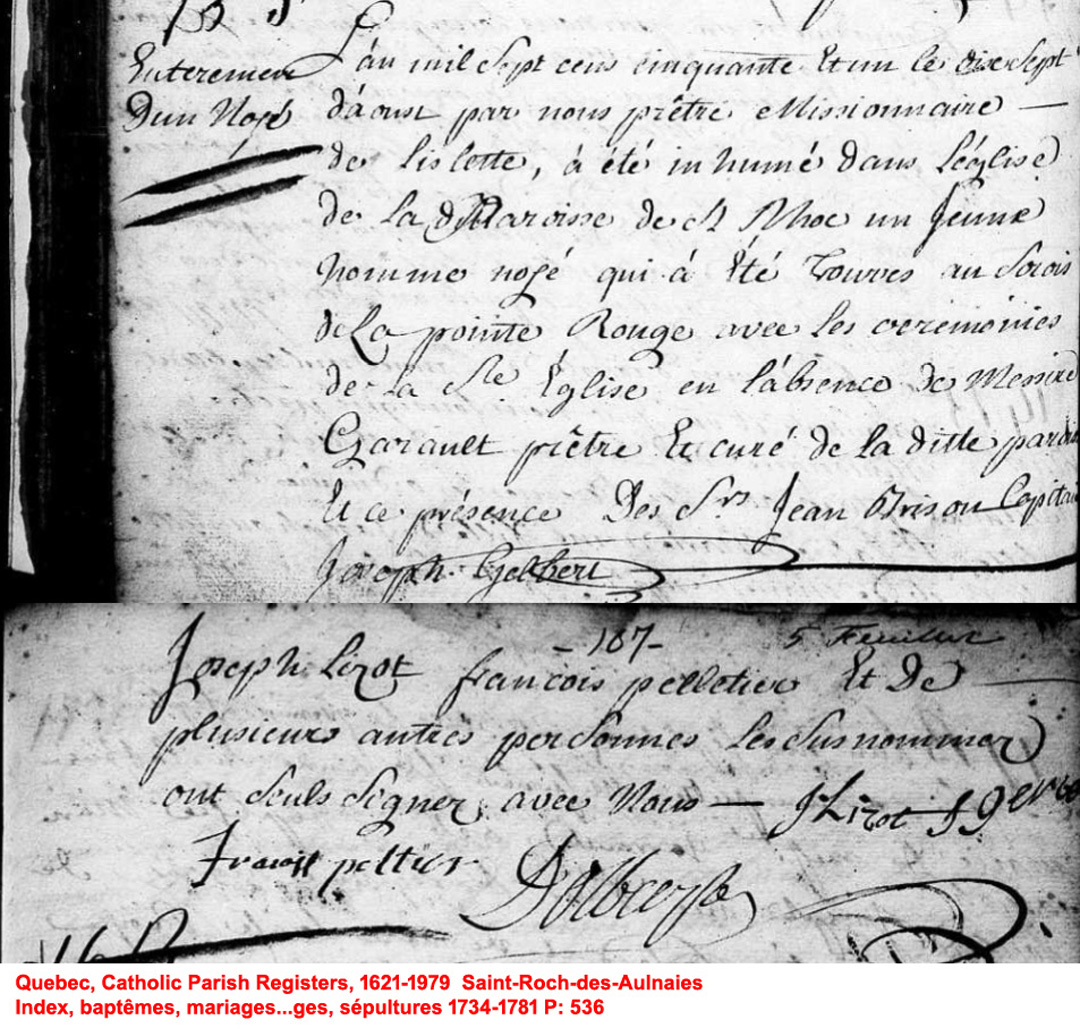 Enterement
Dun Noyé
L'an mil Sept cens cinquante Et un le dixe Sept
d'aoust par nous prêtre Missionnaire —
de Lislette, à été inhumé dans L'église
de La de Paroisse de St Rhoc un Jeune
homme noyé qui à Eté Trouvés au Sorois
de La pointe Rouge avec les ceremonies
de La Ste Eglise en L'absence de Messire
Garault prêtre Et curé de la ditte
Et ce présence Des Srs Jean Brison
Joseph Gelbert
- 107 - 5 Feuillet
Joseph Lizot francois pelletier Et De
plusieurs autres personnes Les Susnommez
ont Seuls Signez avec Nous — J Lizot
pelltier Dolbreuse
Quebec, Catholic Parish Registers, 1621-1979 Saint-Roch-des-Aulnaies
Index, baptêmes, mariages...ges, sépultures 1734-1781 P: 536